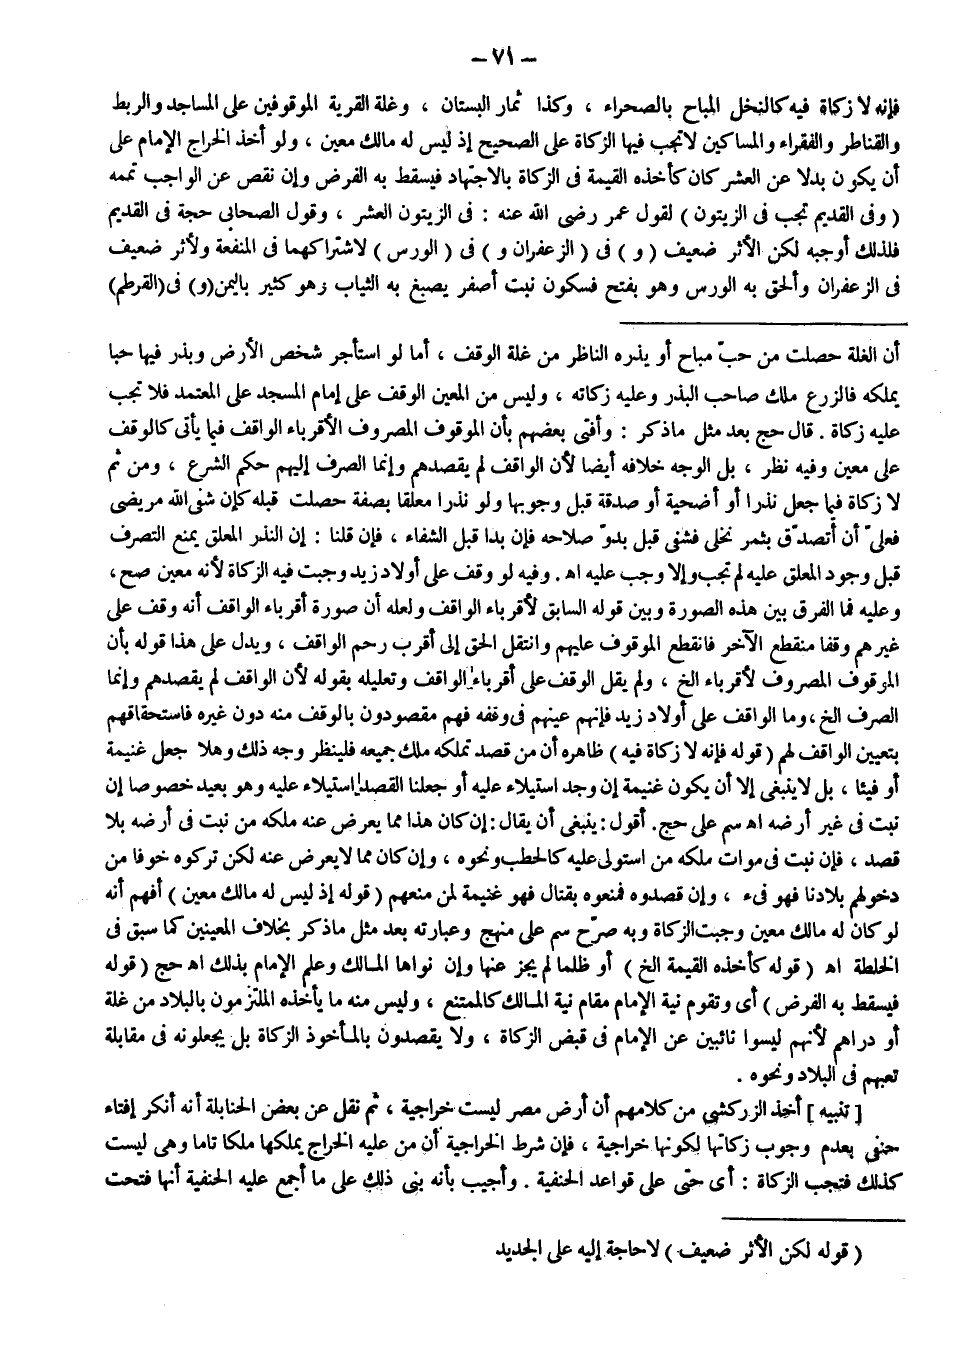 – ٧١ –
فإنه لا زكاة فيه كالنخل المباح بالصحراء ، وكذا ثمار البستان ، وغلة القرية الموقوفين على المساجد والربط
والقناطر والفقراء والمساكين لاتجب فيها الزكاة على الصحيح إذ ليس له مالك معين ، ولو أخذ الخراج الإمام على
أن يكون بدلا عن العشر كان كأخذه القيمة فى الزكاة بالاجتهاد فيسقط به الفرض وإن نقص عن الواجب تممه
( وفى القديم تجب فى الزيتون ) لقول عمر رضى الله عنه : فى الزيتون العشر ، وقول الصحابى حجة فى القديم
فلذلك أوجبه لكن الأثر ضعيف ( و ) فى ( الزعفران و ) فى ( الورس ) لاشتراكهما فى المنفعة ولأثر ضعيف
فى الزعفران وألحق به الورس وهو بفتح فسكون نبت أصفر يصبغ به الثياب وهو كثير باليمن (و) فى(القرطم)
أن الغلة حصلت من حبّ مباح أو يذره الناظر من غلة الوقف ، أما لو استأجر شخص الأرض وبذر فيها حبا
يملكه فالزرع ملك صاحب البذر وعليه زكاته ، وليس من المعين الوقف على إمام المسجد على المعتمد فلا تجب
عليه زكاة . قال حج بعد مثل ماذكر : وأفتى بعضهم بأن الموقوف المصروف لأقرباء الواقف فيما يأتى كالوقف
على معين وفيه نظر ، بل الوجه خلافه أيضا لأن الواقف لم يقصدهم وإنما الصرف إليهم حكم الشرع ، ومن ثم
لا زكاة فيما جعل نذرا أو أضحية أو صدقة قبل وجوبها ولو نذرا معلقا بصفة حصلت قبله كإن شفى الله مريضى
فعلىّ أن أتصدّق بثمر نخلى فشفى قبل بدوّ صلاحه فإن بدا قبل الشفاء ، فإن قلنا : إن النذر المعلق يمنع التصرف
قبل وجود المعلق عليه لم تجب وإلا وجب عليه اه . وفيه لو وقف على أولاد زيد وجبت فيه الزكاة لأنه معين صح ،
وعليه فما الفرق بين هذه الصورة وبين قوله السابق لأقرباء الواقف ولعله أن صورة أقرباء الواقف أنه وقف على
غيرهم وقفا منقطع الآخر فانقطع الموقوف عليهم وانتقل الحق إلى أقرب رحم الواقف ، ويدل على هذا قوله بأن
الموقوف المصروف لأقرباء الخ ، ولم يقل الوقف على أقرباء الواقف وتعليله بقوله لأن الواقف لم يقصدهم وإنما
الصرف الخ ، وما الواقف على أولاد زيد فإنهم عينهم فى وقفه فهم مقصودون بالوقف منه دون غيره فاستحقاقهم
بتعيين الواقف لهم ( قوله فإنه لا زكاة فيه ) ظاهره أن من قصد تملكه ملك جميعه فلينظر وجه ذلك وهلا جعل غنيمة
أو فيئا ، بل لاينبغى إلا أن يكون غنيمة إن وجد استيلاء عليه أو جعلنا القصد استيلاء عليه وهو بعيد خصوصا إن
نبت فى غير أرضه اه سم على حج . أقول : ينبغى أن يقال : إن كان هذا مما يعرض عنه ملكه من نبت فى أرضه بلا
قصد ، فإن نبت فى موات ملكه من استولى عليه كالحطب ونحوه ، وإن كان مما لايعرض عنه لكن تركوه خوفا من
دخولهم بلادنا فهو فىء ، وإن قصدوه فمنعوه بقتال فهو غنيمة لمن منعهم ( قوله إذ ليس له مالك معين ) أفهم أنه
لو كان له مالك معين وجبت الزكاة وبه صرّح سم على منهج وعبارته بعد مثل ماذكر بخلاف المعينين كما سبق فى
الخلطة اه ( قوله كأخذه القيمة الخ ) أو ظلما لم يجز عنها وإن نواها المالك وعلم الإمام بذلك اه حج ( قوله
فيسقط به الفرض ) أى وتقوم نية الإمام مقام نية المالك كالممتنع ، وليس منه ما يأخذه الملتزمون بالبلاد من غلة
أو دراهم لأنهم ليسوا نائبين عن الإمام فى قبض الزكاة ، ولا يقصدون بالمأخوذ الزكاة بل يجعلونه فى مقابلة
تعبهم فى البلاد ونحوه .
[ تنبيه ] أخذ الزركشى من كلامهم أن أرض مصر ليست خراجية ، ثم نقل عن بعض الحنابلة أنه أنكر إفتاء
حنفى بعدم وجوب زكاتها لكونها خراجية ، فإن شرط الخراجية أن من عليه الخراج يملكها ملكا تاما وهى ليست
كذلك فتجب الزكاة : أى حتى على قواعد الحنفية . وأجيب بأنه بنى ذلك على ما أجمع عليه الحنفية أنها فتحت
( قوله لكن الأثر ضعيف ) لاحاجة إليه على الجديد